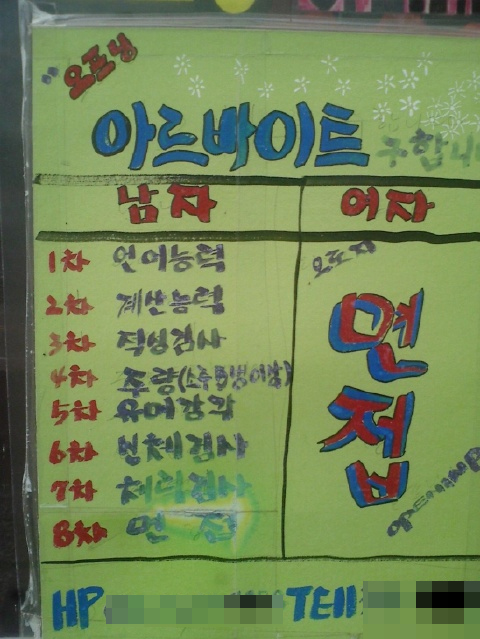 오픈닝
아르바이트 구합니다
남자 여자
1차 언어능력
2차 계산능력
3차 적성검사
4차 주량(소주3병이상)
5차 유머감각
6차 신체검사
7차 체력검사
8차 면접
오로지
면접
HP TEll